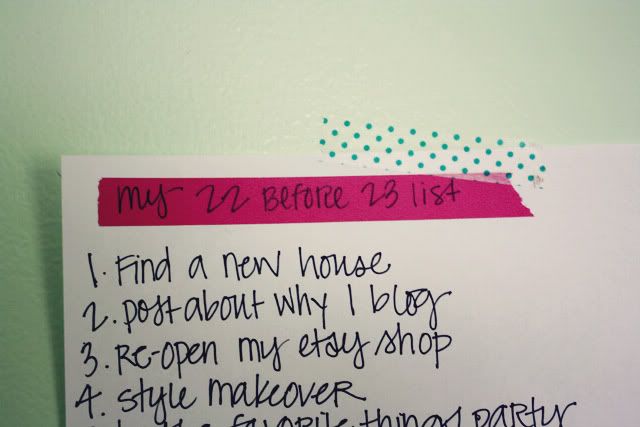 my 22 before 23 list
1. Find a new house
2. post about why I blog
3. Re-open my etsy shop
4. style makeover
favorite things party